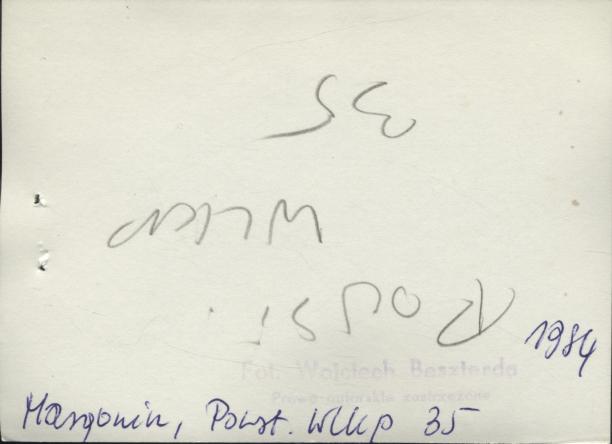 Powst.
Wlkp
35
1984
Fot. Wojciech Beszterda
Prawa autorskie zastrzeżone
Margonin, Powst. Wlkp 35